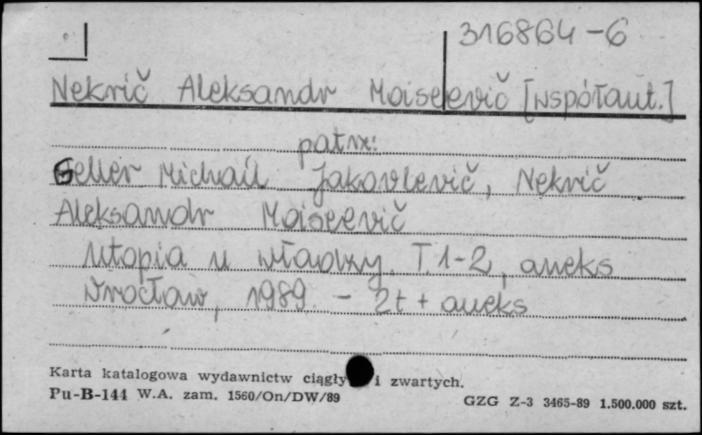 316864-6
Nekrič Aleksandr Moiseevič [współaut.]
patrz:
Geller Michail Jakovlevič, Nekrič
Aleksandr Moiseevič
Utopia u władzy. T. 1-2, aneks
Wrocław, 1989. - 2t + aneks
Karta katalogowa wydawnictw ciągły i zwartych.
Pu-B-144 W.A. zam. 1560/On/DW/89
GZG Z-3 3465-89 1.500.000 szt.